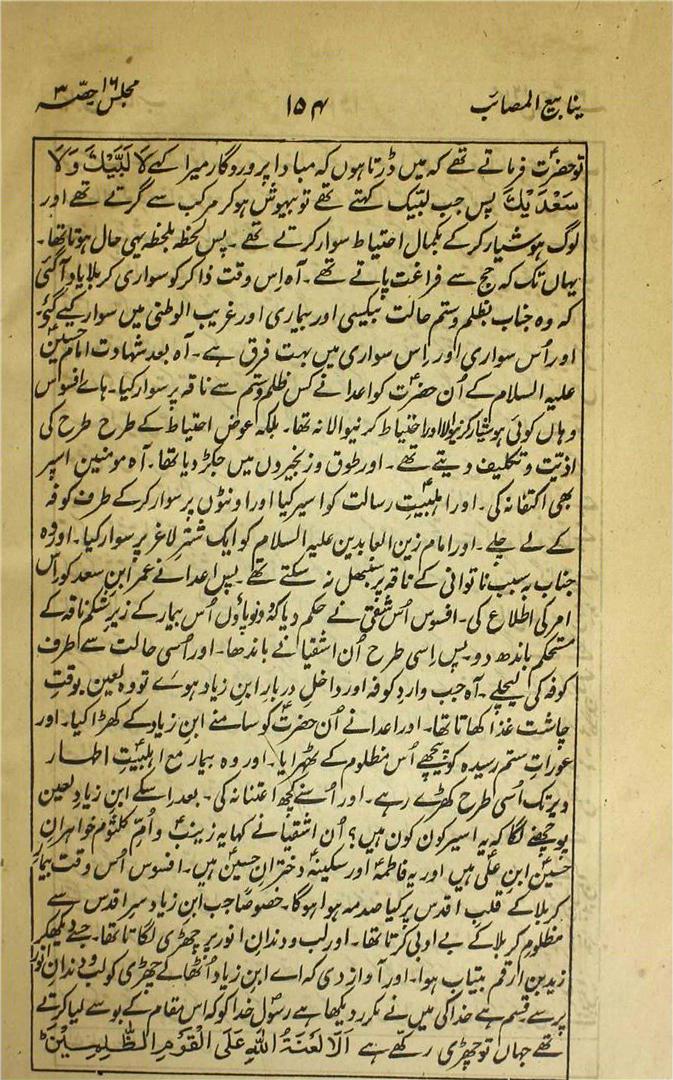 ینابیع المصائب ۱۵۴ مجلس ۱۶ حصّہ ۳
توحضرتؑ فرماتے تھے کہ میں ڈرتا ہوں کہ مبادا پروردگار میرا کہے لَا لَبَّیْکَ وَلَا
سَعْدَیْکَ پس جب لبّیک کہتے تھے تو بیہوش ہوکر مرکب سے گرتے تھے اور
لوگ ہوشیار کرکے بکمال احتیاط سوار کرتے تھے۔ پس لحظہ بلحظہ یہی حال ہوتا تھا۔
یہاں تک کہ حج سے فراغت پاتے تھے۔ آہ اِس وقت ذاکر کو سواری کربلا یاد آگئی
کہ وہ جناب بظلم وستم حالت بیکسی اور بیماری اور غریب الوطنی میں سوار کیے گئے۔
اور اُس سواری اور اِس سواری میں بہت فرق ہے۔ آہ بعد شہادت امام حسینؑ
علیہ السلام کے اُن حضرتؑ کو اعدا نے کس ظلم وستم سے ناقہ پر سوار کیا۔ ہاے افسوس
وہاں کوئی ہوشیار کرنیوالا اور احتیاط کرنیوالا نہ تھا۔ بلکہ عوض احتیاط کے طرح طرح کی
اذیّت وتکلیف دیتے تھے۔ اور طوق وزنجیروں میں جکڑ دیا تھا۔ آہ مومنین اسپر
بھی اکتفا نہ کی۔ اور اہلبیتِؑ رسالت کو اسیر کیا اور اونٹوں پر سوار کرکے طرف کوفہ
کے لے چلے۔ اور امام زین العابدین علیہ السلام کو ایک شتر لاغر پر سوار کیا۔ اور وہ
جناب بہ سبب ناتوانی کے ناقہ پر سنبھل نہ سکتے تھے۔ پس اعدا نے عمر ابن سعد کو اِس
امر کی اطلاع کی۔ افسوس اُس شقی نے حکم دیا کہ دونو پاؤں اُس بیمار کے زیر شکم ناقہ کے
مستحکم باندھ دو۔ پس اِسی طرح اُن اشقیا نے باندھا۔ اور اُسی حالت سے طرف
کوفہ کی لیچلے۔ آہ جب وارد کوفہ اور داخل دربار ابن زیاد ہوئے تو وہ لعین بوقتِ
چاشت غذا کھاتا تھا۔ اور اعدا نے اُن حضرتؑ کو سامنے ابن زیاد کے کھڑا کیا۔ اور
عورات ستم رسیدہ کو پیچھے اُس مظلوم کے ٹھہرایا۔ اور وہ بیمار مع اہلبیتِؑ اطہار
دیر تک اُسی طرح کھڑے رہے۔ اور اُسنے کچھ اعتنا نہ کی۔ بعد اسکے ابن زیاد لعین
پوچھنے لگا کہ یہ اسیر کون کون ہیں؟ اُن اشقیا نے کہا یہ زینبؑ و اُمّ کلثومؑ خواہران
حسینؑ ابن علیؑ ہیں اور یہ فاطمہؑ اور سکینہؑ دختران حسینؑ ہیں۔ افسوس اُس وقت بیمار
کربلا کے قلب اقدس پر کیا صدمہ ہوا ہوگا۔ خصوصاً جب ابن زیاد سر اقدس سے
مظلوم کربلا کے بے ادبی کرتا تھا۔ اور لب و دندان انور پر چھڑی لگاتا تھا۔ جسے دیکھکر
زید بن ارقم بیتاب ہوا۔ اور آواز دی کہ اے ابن زیاد اُٹھا لے چھڑی کو لب و دندان انور
پر سے۔ قسم ہے خدا کی میں نے مکرر دیکھا ہے رسول خدا کو کہ اس مقام کے بوسے لیا کرتے
تھے جہاں تو چھڑی رکھے ہے اَلَا لَعْنَۃُ اللّٰہِ عَلَی الْقَوْمِ الظّٰلِمِیْنَ